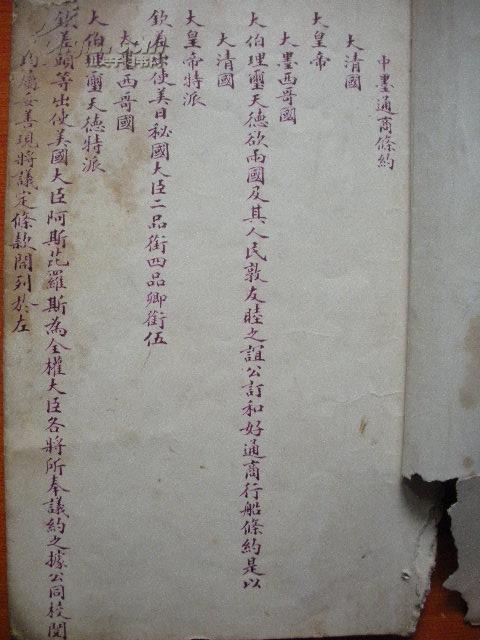 中墨通商條約
大清國
大皇帝
大墨西哥國
大伯理璽天德欲兩國及其人民敦友睦之誼公訂和好通商行船條約是以
大清國
大皇帝特派
欽差出使美日秘國大臣二品銜四品卿銜伍
大墨西哥國
大伯理璽天德特派
欽差頭等出使美國大臣阿斯芘羅斯為全權大臣各將所奉議約之據公同校閱
均屬妥善現將議定條款開列於左